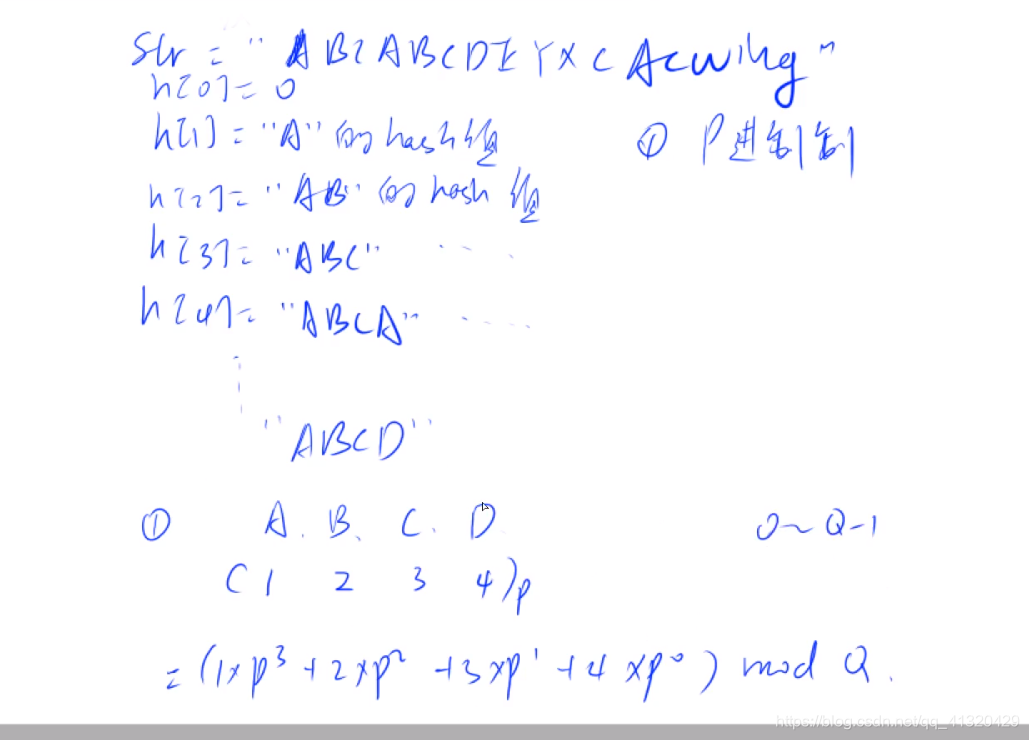 Str = "ABCABCDEYXCAcwing"
h[0] = 0
h[1] = "A" 的 hash 值
① P进制
h[2] = "AB" 的 hash 值
h[3] = "ABC" ....
h[4] = "ABCA" ....
"ABCD"
① A. B. C. D
0~Q-1
(1 2 3 4)p
= (1×p³ + 2×p² + 3×p¹ + 4×p⁰) mod Q.
https://blog.csdn.net/qq_41320429